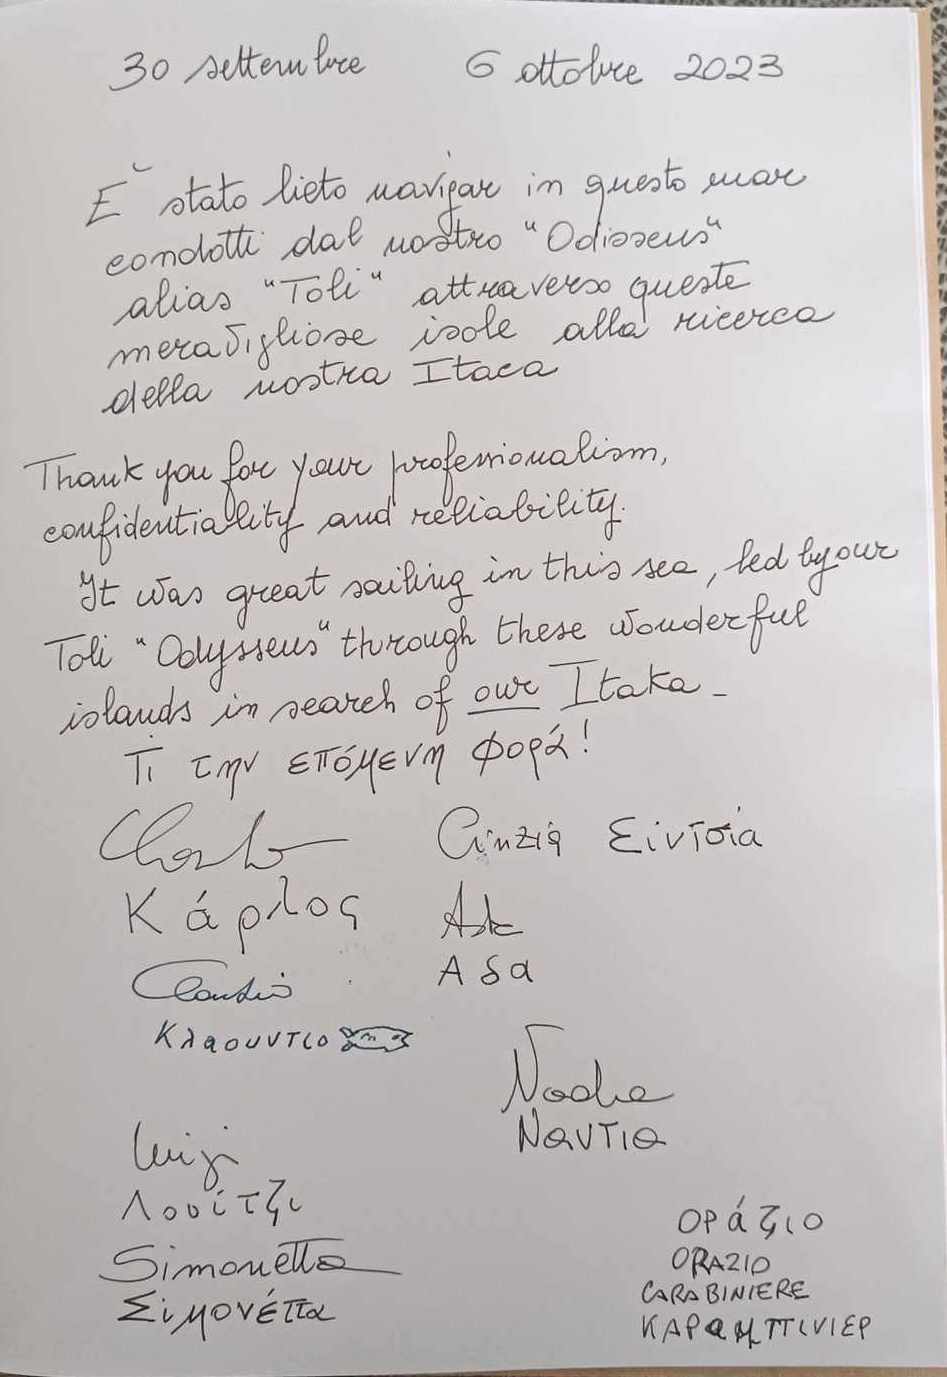 30 settembre 6 ottobre 2023
E' stato lieto navigar in questo mar
condotti dal nostro "Odisseus"
alias "Toli" attraverso queste
meravigliose isole alla ricerca
della nostra Itaca
Thank you for your professionalism,
confidentiality and reliability.
It was great sailing in this sea, led by our
Toli "Odysseus" through these wonderful
islands in search of our Itaka -
Τι την επόμενη φορά!
Cinzia Σιντσία
Κάρλος
Αδα
Claudio
Κλαουντιο
Nadia
Ναντια
Luigi
Λουίτζι
Simonetta
Σιμονέττα
ΟΡάζιο
ORAZIO
CARABINIERE
ΚΑΡαμπινιερ